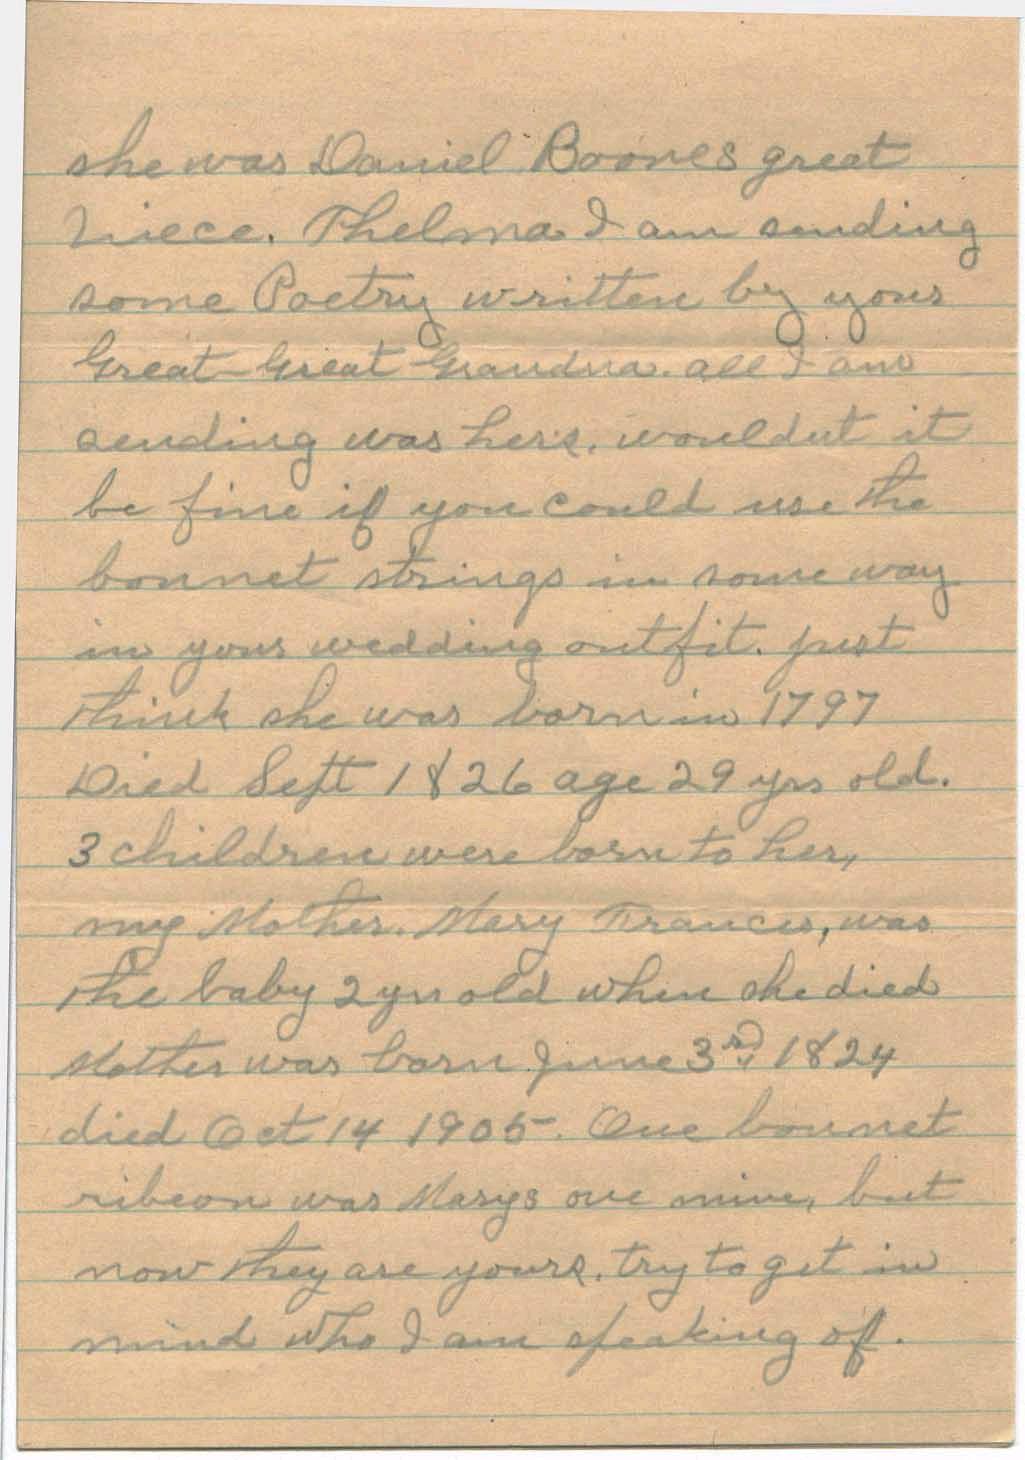 she was Daniel Boones great
Niece. Thelma I am sending
some Poetry written by your
Great-Great-Grandma. all I am
sending was hers. wouldut it
be fine if you could use the
bonnet strings in some way
in your wedding outfit. just
think she was born in 1797
Died Sept 1826 age 29 yrs old.
3 children were born to her,
my Mother. Mary Frances, was
the baby 2 yrs old when she died
Mother was born June 3rd, 1824
died Oct 14 1905. One bonnet
ribeon was Marys one mine, but
now they are yours. try to get in
mind who I am speaking of.